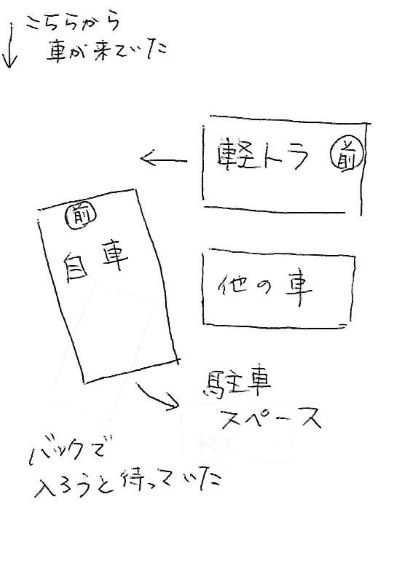 こちらから
車が来ていた
軽トラ 前
前
自車
他の車
駐車
スペース
バックで
入ろうと待っていた